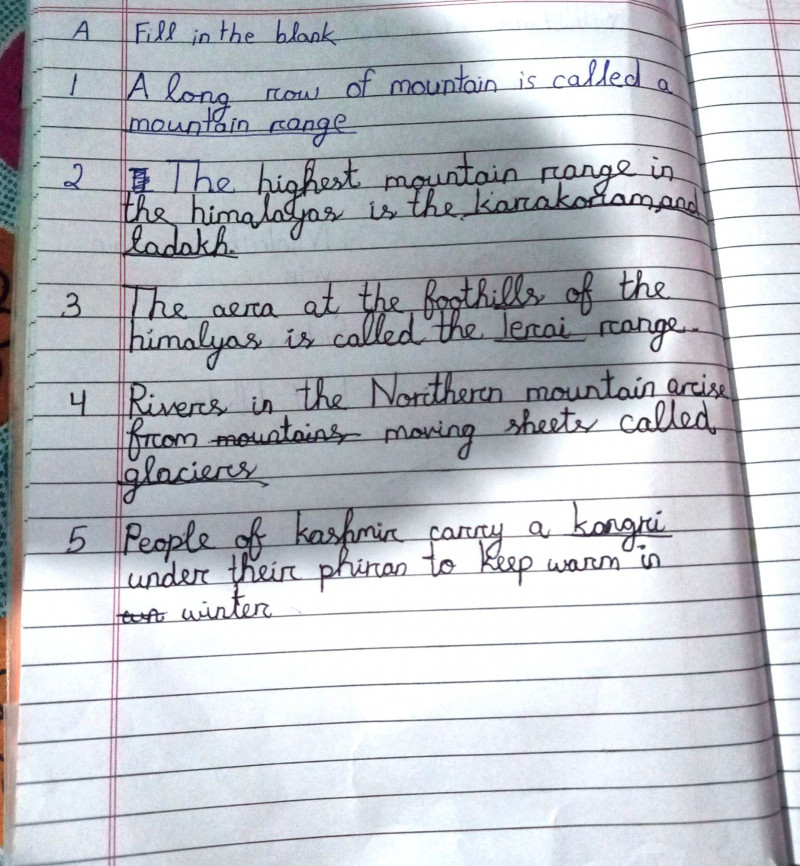 A Fill in the blank
1 A long row of mountain is called a
mountain range
2 The highest mountain range in
the himalayas is the karakoram and
ladakh.
3 The aera at the foothills of the
himalyas is called the Terai range.
4 Rivers in the Northern mountain arise
from mountains moving sheets called
glaciers
5 People of kashmir carry a kangri
under their phiran to keep warm in
winter